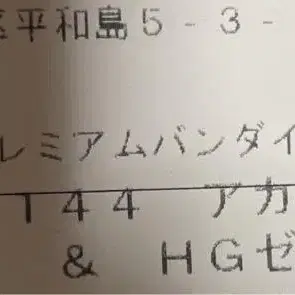 平和島５－３－
レミアムバンダイ
１４４　アカ
＆　ＨＧゼ